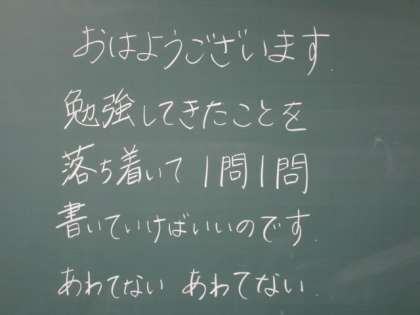 おはようございます.
勉強してきたことを
落ち着いて1問1問
書いていけばいいのです.
あわてない あわてない.